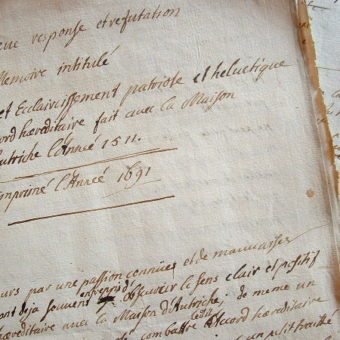 response et refutation
Memoire intitulé
et Eclaircissement patriote et helvetique
accord hereditaire fait avec la Maison
Autriche l'Année 1511.
imprimé l'Anneé 1691
par une passion connüe, et de mauvaises
ont deja souvent entrepris d'obscurcir le sens clair et positif
hereditaire avec la Maison d'Autriche, de meme un
combattre l'accord hereditaire